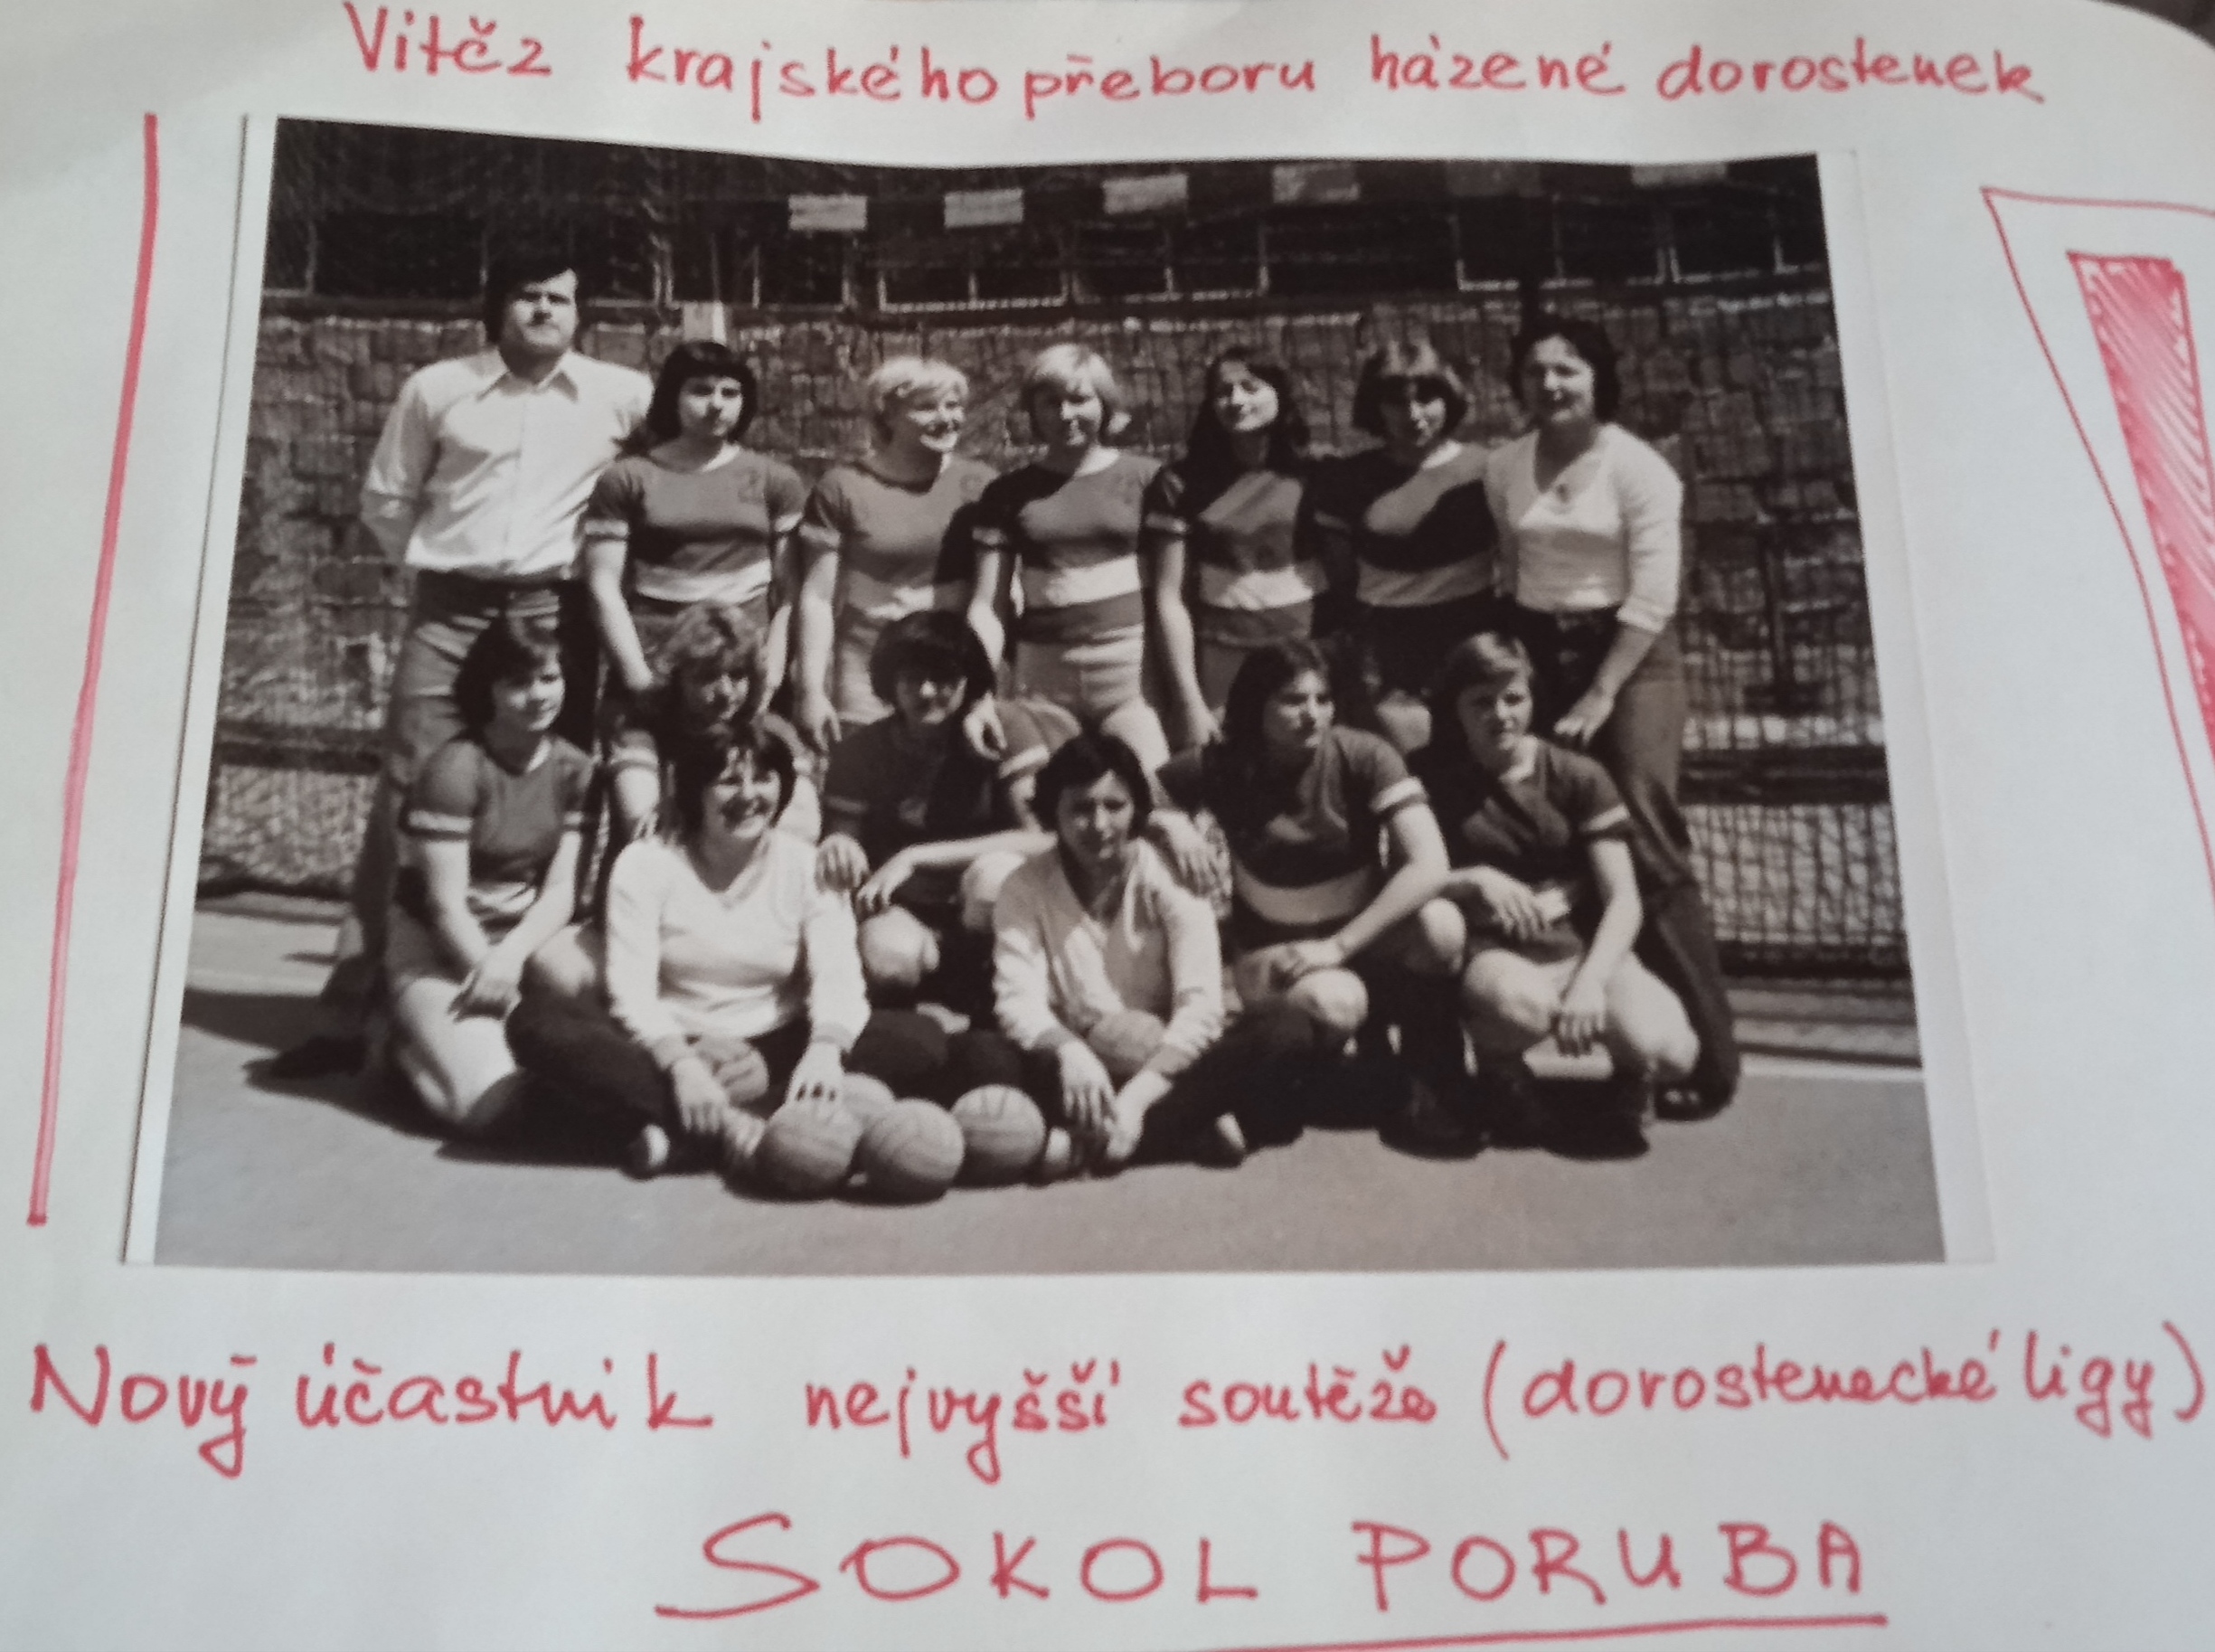 Vítěz krajského přeboru házené dorostenek
Nový účastník nejvyšší soutěže (dorostenecké ligy)
SOKOL PORUBA